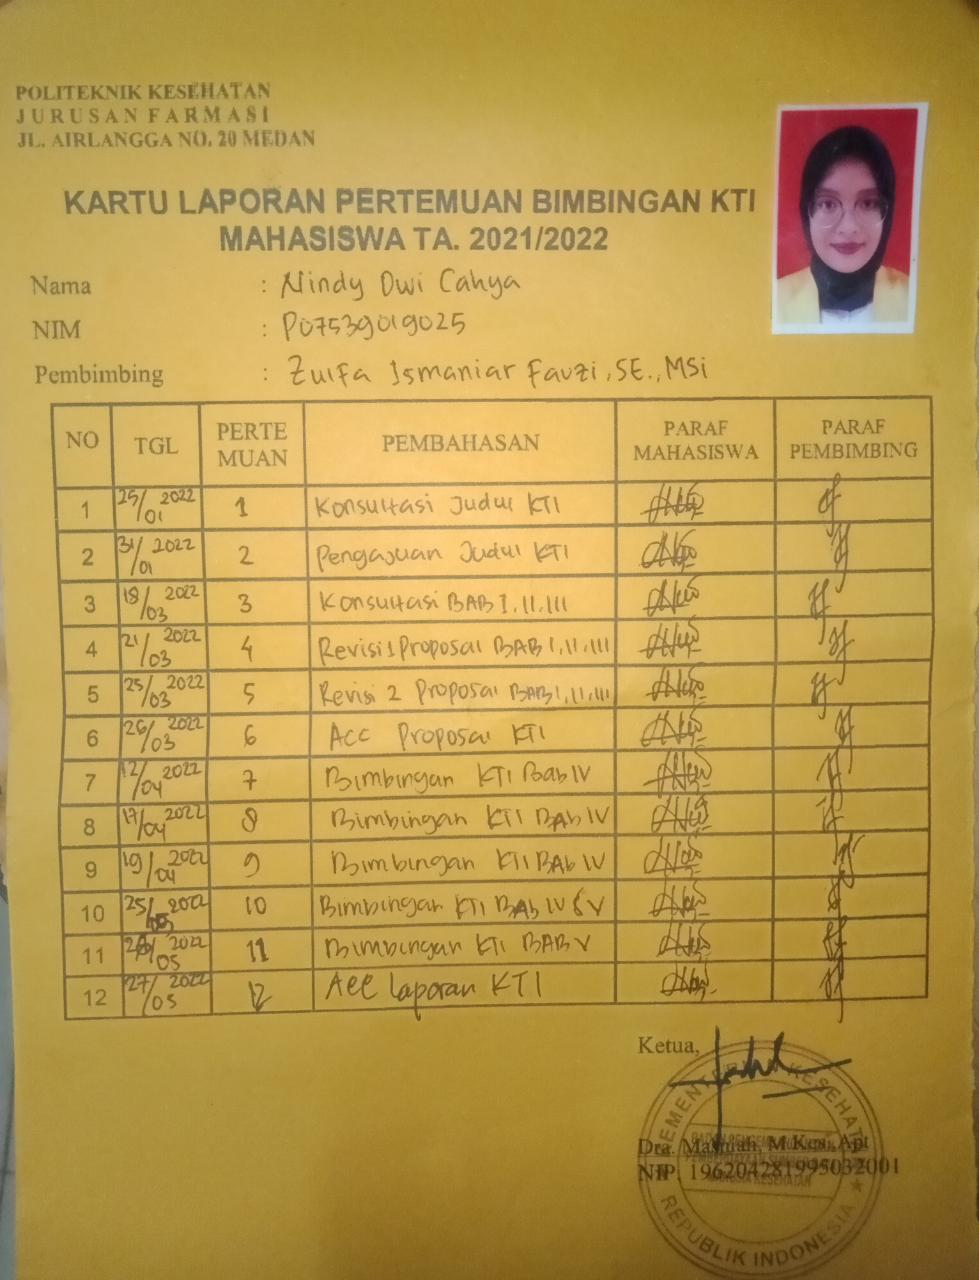 POLITEKNIK KESEHATAN
JURUSAN FARMASI
JL. AIRLANGGA NO. 20 MEDAN
KARTU LAPORAN PERTEMUAN BIMBINGAN KTI
MAHASISWA TA. 2021/2022
Nama : Nindy Dwi Cahya
NIM : P07539019025
Pembimbing : Zulfa Ismaniar Fauzi, SE., MSi
NO TGL PERTE MUAN PEMBAHASAN PARAF MAHASISWA PARAF PEMBIMBING
1 25/01 2022 1 Konsultasi Judul KTI
2 31/01 2022 2 Pengajuan Judul KTI
3 18/03 2022 3 Konsultasi BAB I, II, III
4 21/03 2022 4 Revisi 1 Proposal BAB I, II, III
5 25/03 2022 5 Revisi 2 Proposal BAB I, II, III
6 26/03 2022 6 Acc Proposal KTI
7 12/04 2022 7 Bimbingan KTI Bab IV
8 17/04 2022 8 Bimbingan KTI BAb IV
9 19/04 2022 9 Bimbingan KTI BAb IV
10 25/05 2022 10 Bimbingan KTI BAb IV & V
11 /05 2022 11 Bimbingan KTI BAB V
12 27/05 2022 12 Acc laporan KTI
Ketua,
KEMENTERIAN KESEHATAN
Dra. Masniah, M.Kes, Apt
NIP. 196204281995032001
REPUBLIK INDONESIA